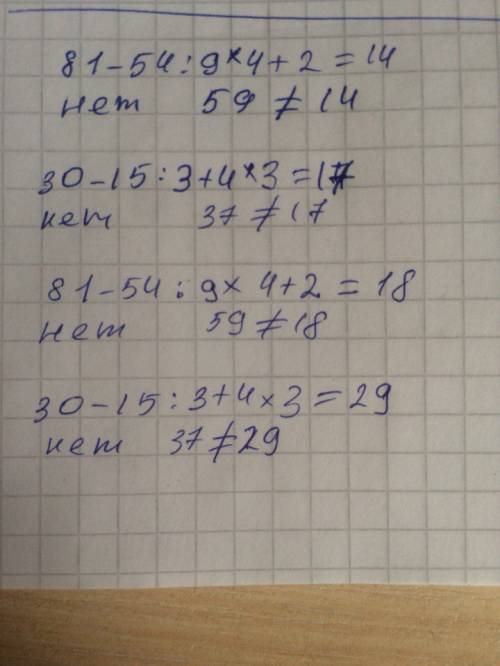 81-54:9×4+2=14
нет 59≠14
30-15:3+4×3=17
нет 37≠17
81-54:9×4+2=18
нет 59≠18
30-15:3+4×3=29
нет 37≠29